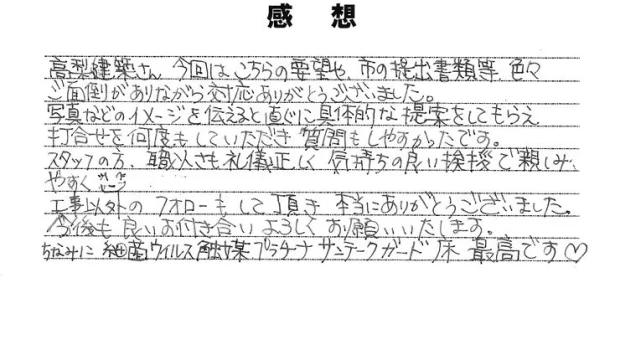 感想
高梨建築さん 今回は こちらの要望や、市の提出書類等 色々
ご面倒がありながら対応ありがとうございました。
写真などのイメージを伝えると直ぐに具体的な提案をしてもらえ
打合せを何度もしていただき 質問もしやすかったです。
スタッフの方、職人さも礼儀正しく 気持ちの良い挨拶で親しみ
やすく
工事以外の フォローもして頂き 本当にありがとうございました。
今後も 良いお付き合い よろしく お願いいたします。
ちなみに 細菌ウイルス触媒プラチナ サンテークガード 床 最高です♡